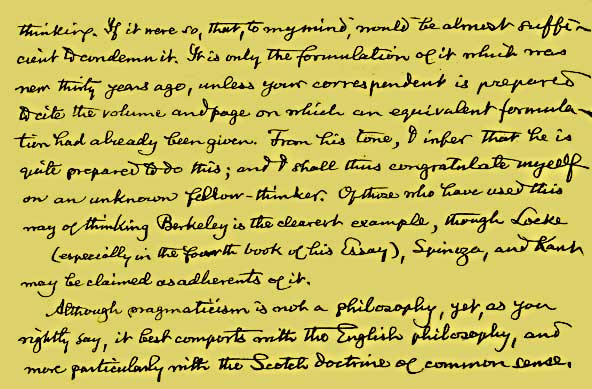 thinking. If it were so, that, to my mind, would be almost suffi-
cient to condemn it. It is only the formulation of it which was
new thirty years ago, unless your correspondent is prepared
to cite the volume and page on which an equivalent formula-
tion had already been given. From his tone, I infer that he is
quite prepared to do this; and I shall thus congratulate myself
on an unknown fellow-thinker. Of those who have used this
way of thinking Berkeley is the clearest example, though Locke
(especially in the fourth book of his Essay), Spinoza, and Kant
may be claimed as adherents of it.
Although pragmaticism is not a philosophy, yet, as you
rightly say, it best comports with the English philosophy, and
more particularly with the Scotch doctrine of common sense.